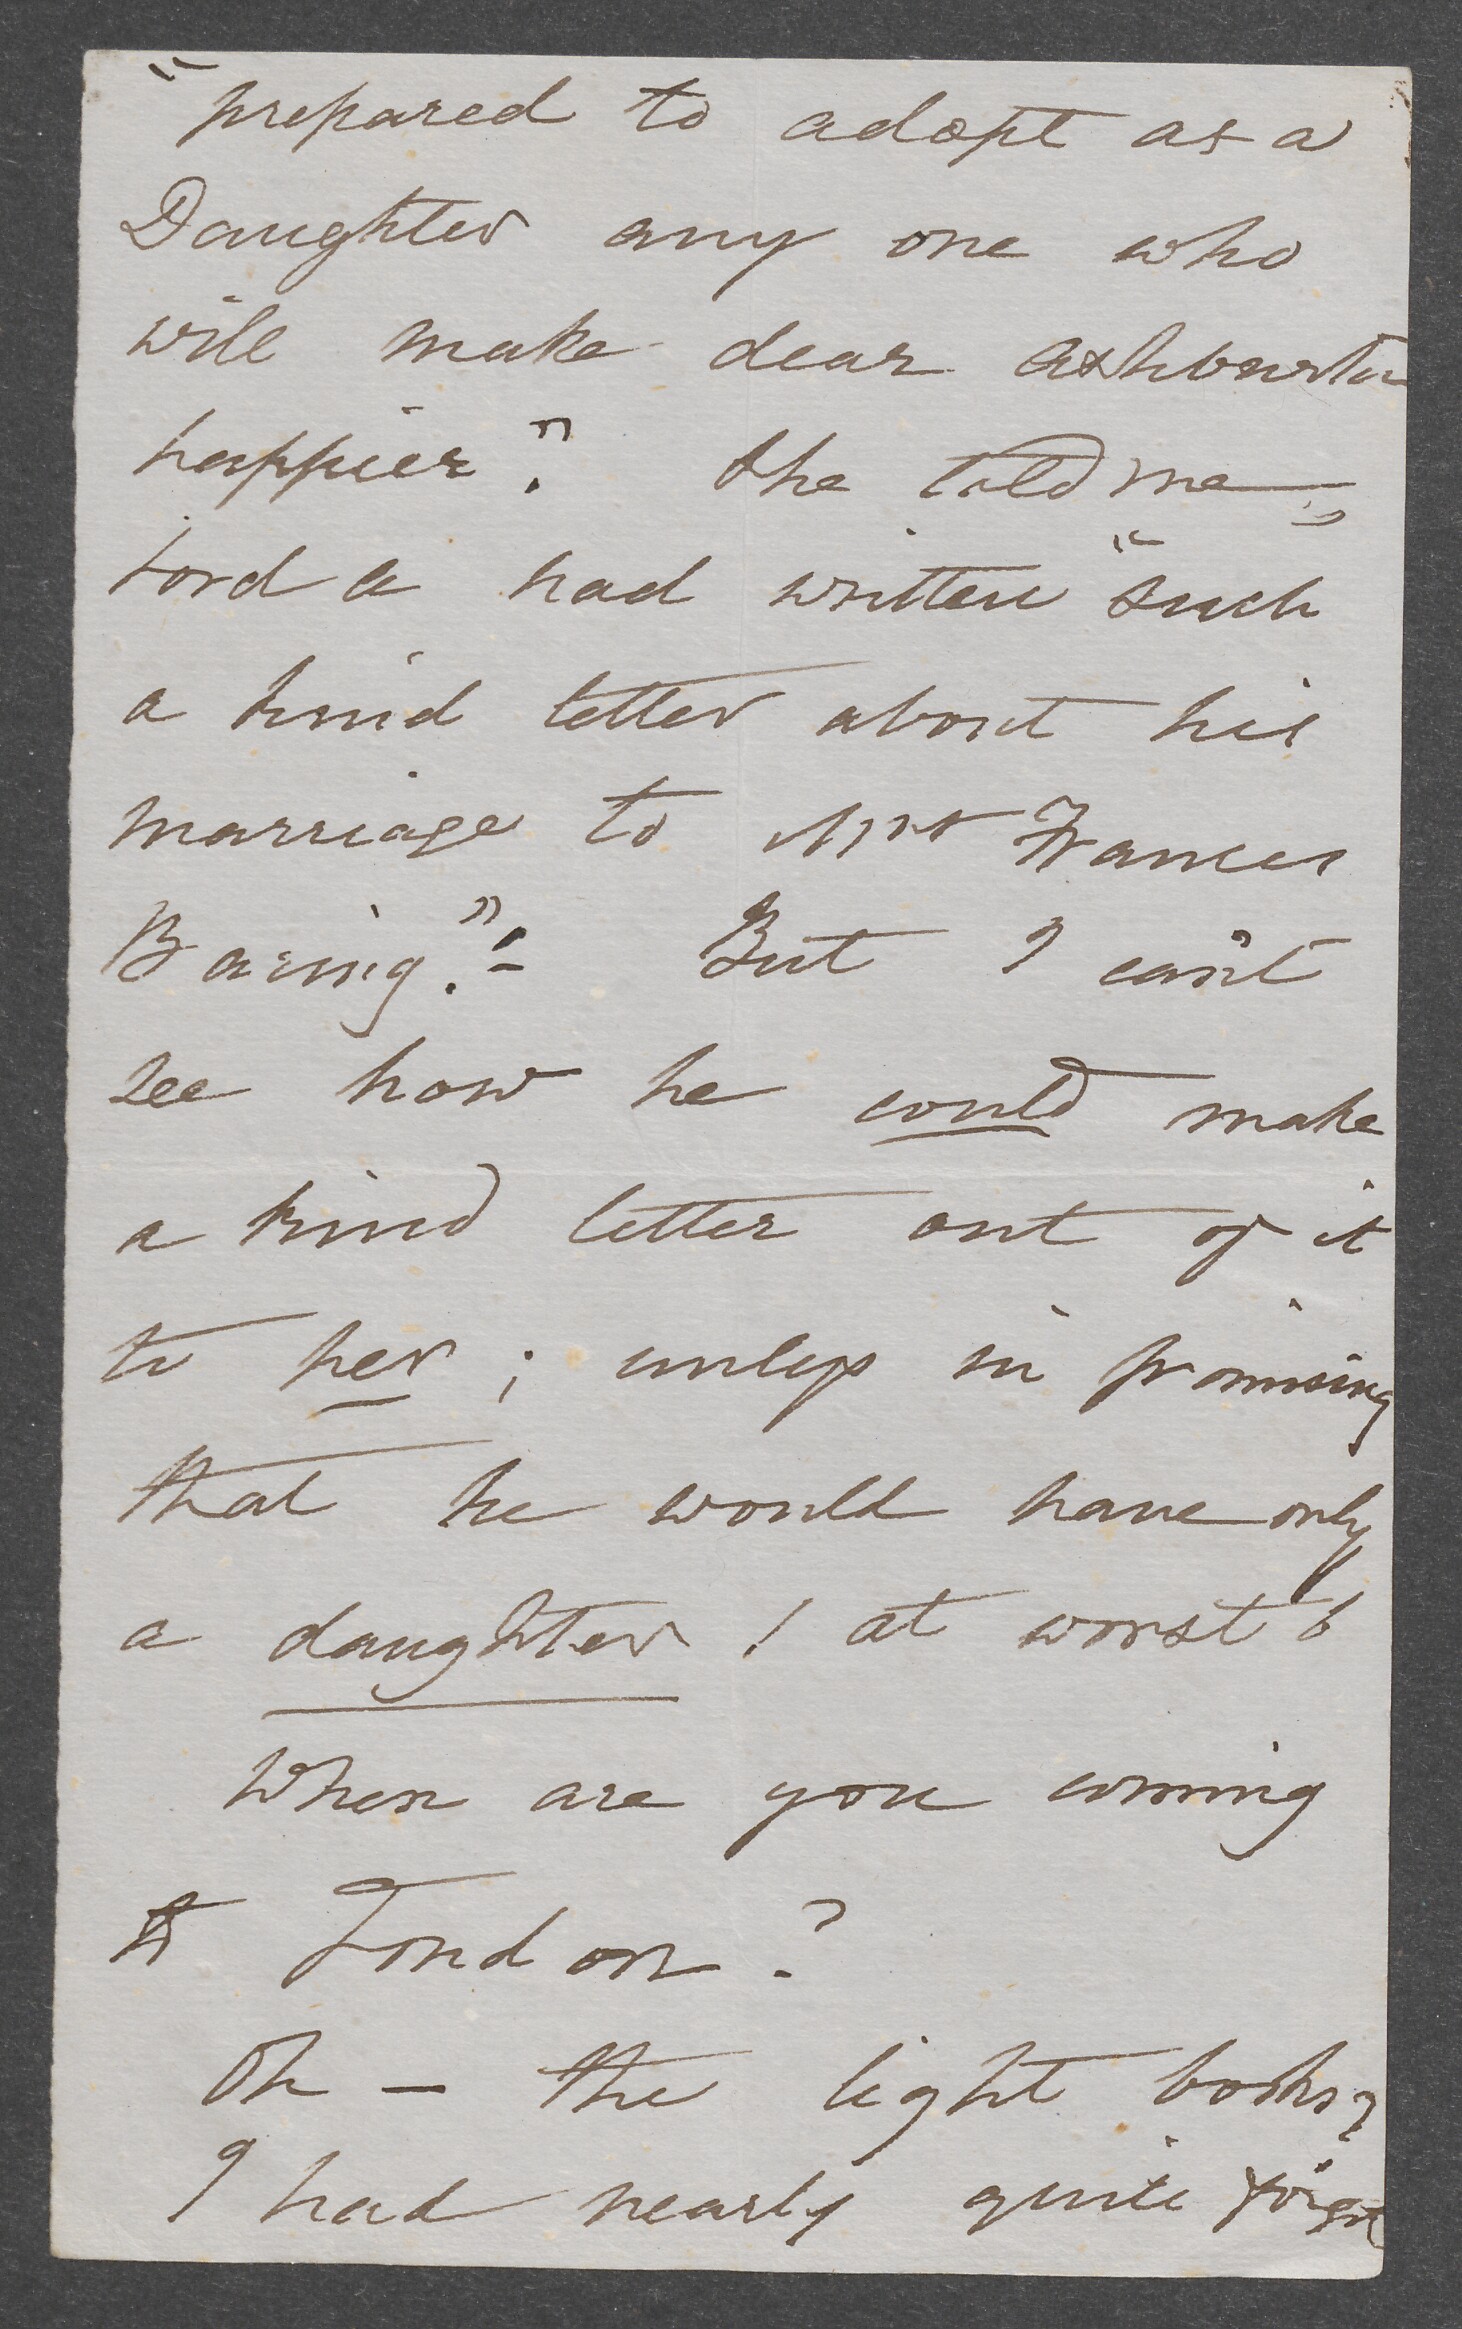 "prepared to adopt as a
Daughter any one who
will make dear Ashburton
happier". She told me
Lord A had written "such
a kind letter about his
marriage to Mrs Frances
Baring."! But I can't
see how he could make
a kind letter out of it
to her; unless in promising
that he would have only
a daughter! at worst!
When are you coming
to London?
Oh — the light books?
I had nearly quite forgot